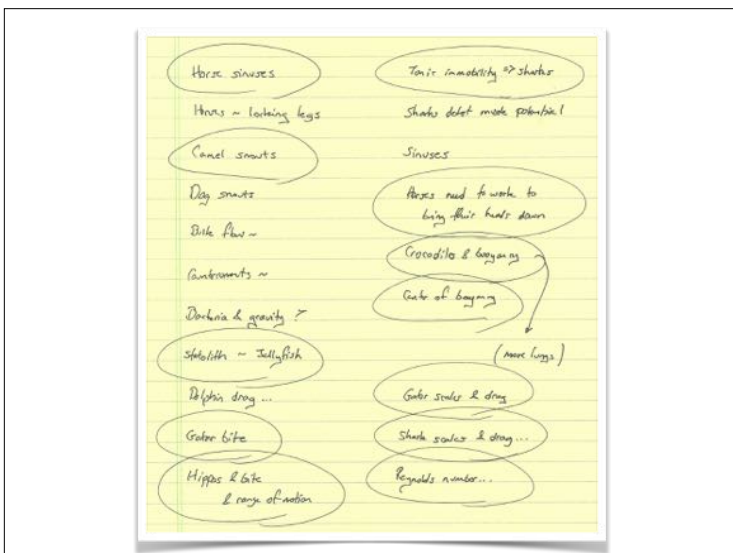 Horse sinuses
Horses ~ locking legs
Camel snouts
Dog snouts
Bike flow ~
Cantilevers ~
Bacteria & gravity ?
Statolith ~ Jellyfish
Dolphin drag ...
Gator bite
Hippos & bite
& range of motion
Tonic immobility => sharks
Sharks detect muscle potential
Sinuses
Horses need to work to
bring their heads down
Crocodiles & buoyancy
Center of buoyancy
(move lungs)
Gator scales & drag
Shark scales & drag...
Reynolds number...